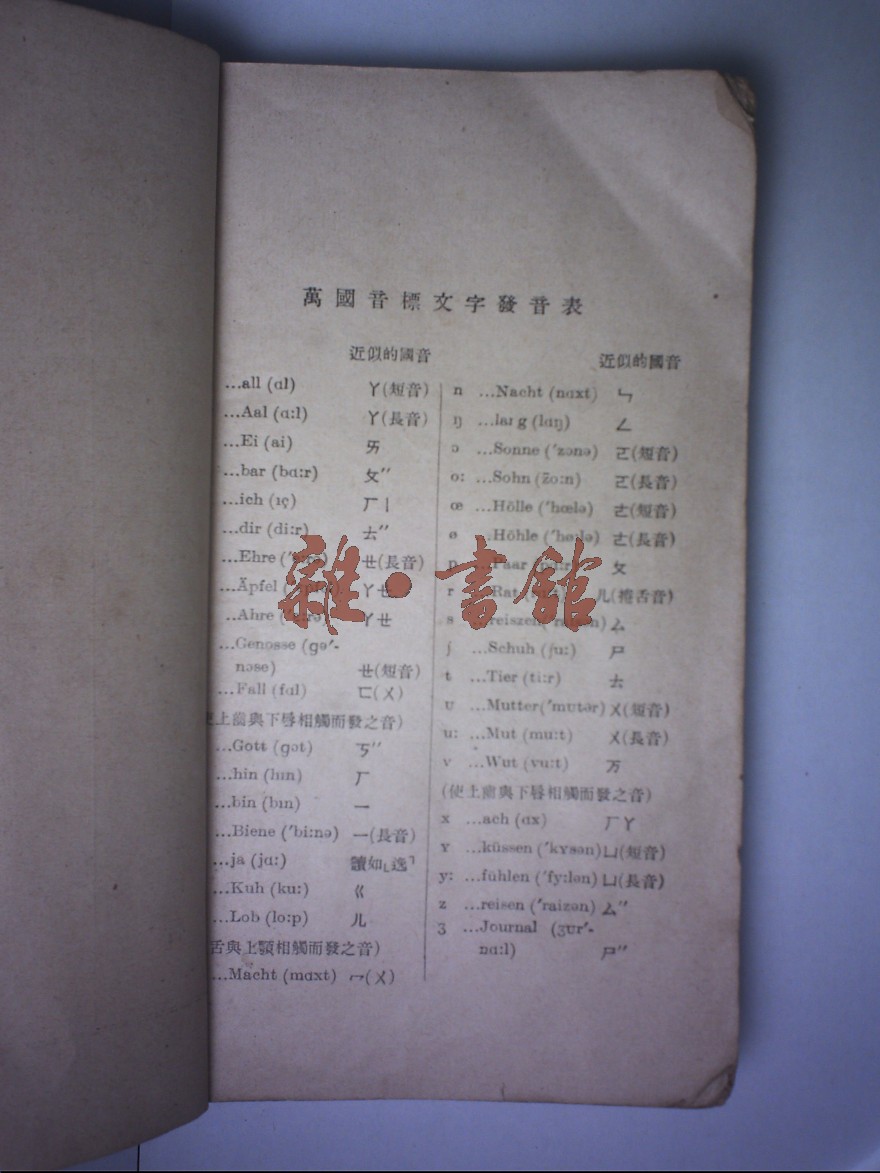 萬國音標文字發音表
近似的國音
...all (ɑl) ㄚ(短音)
...Aal (ɑ:l) ㄚ(長音)
...Ei (ai) ㄞ
...bar (bɑ:r) ㄆ″
...ich (ıç) ㄏㄧ
...dir (di:r) ㄊ″
...Ehre ㄝ(長音)
...Äpfel ㄚㄝ
...Ähre ㄚㄝ
...Genosse (gə′-
nɔse) ㄝ(短音)
...Fall (fɑl) ㄈ(ㄨ)
上齒與下唇相觸而發之音)
...Gott (gɔt) ㄎ″
...hin (hın) ㄏ
...bin (bın) 一
...Biene (′bi:nə) 一(長音)
...ja (jɑ:) 讀如﹂逸﹁
...Kuh (ku:) ㄍ
...Lob (lo:p) ㄦ
舌與上顎相觸而發之音)
...Macht (mɑxt) ㄇ(ㄨ)
近似的國音
n ...Nacht (nɑxt) ㄣ
ŋ ...lang (lɑŋ) ㄥ
ɔ ...Sonne (′zɔnə) ㄛ(短音)
o: ...Sohn (zo:n) ㄛ(長音)
œ ...Hölle (′hœlə) ㄜ(短音)
ø ...Höhle (′hø:lə) ㄜ(長音)
p ...Paar (pɑ:r) ㄆ
r ...Rat ㄦ(捲舌音)
s ㄙ
ʃ ...Schuh (ʃu:) ㄕ
t ...Tier (ti:r) ㄊ
ʊ ...Mutter(′mʊtər) ㄨ(短音)
u: ...Mut (mu:t) ㄨ(長音)
v ...Wut (vu:t) ㄪ
(使上齒與下唇相觸而發之音)
x ...ach (ɑx) ㄏㄚ
ʏ ...küssen (′kʏsən) ㄩ(短音)
y: ...fühlen (′fy:lən) ㄩ(長音)
z ...reisen (′raizən) ㄙ″
ʒ ...Journal (ʒʊr′-
nɑ:l) ㄕ″
雜·書館